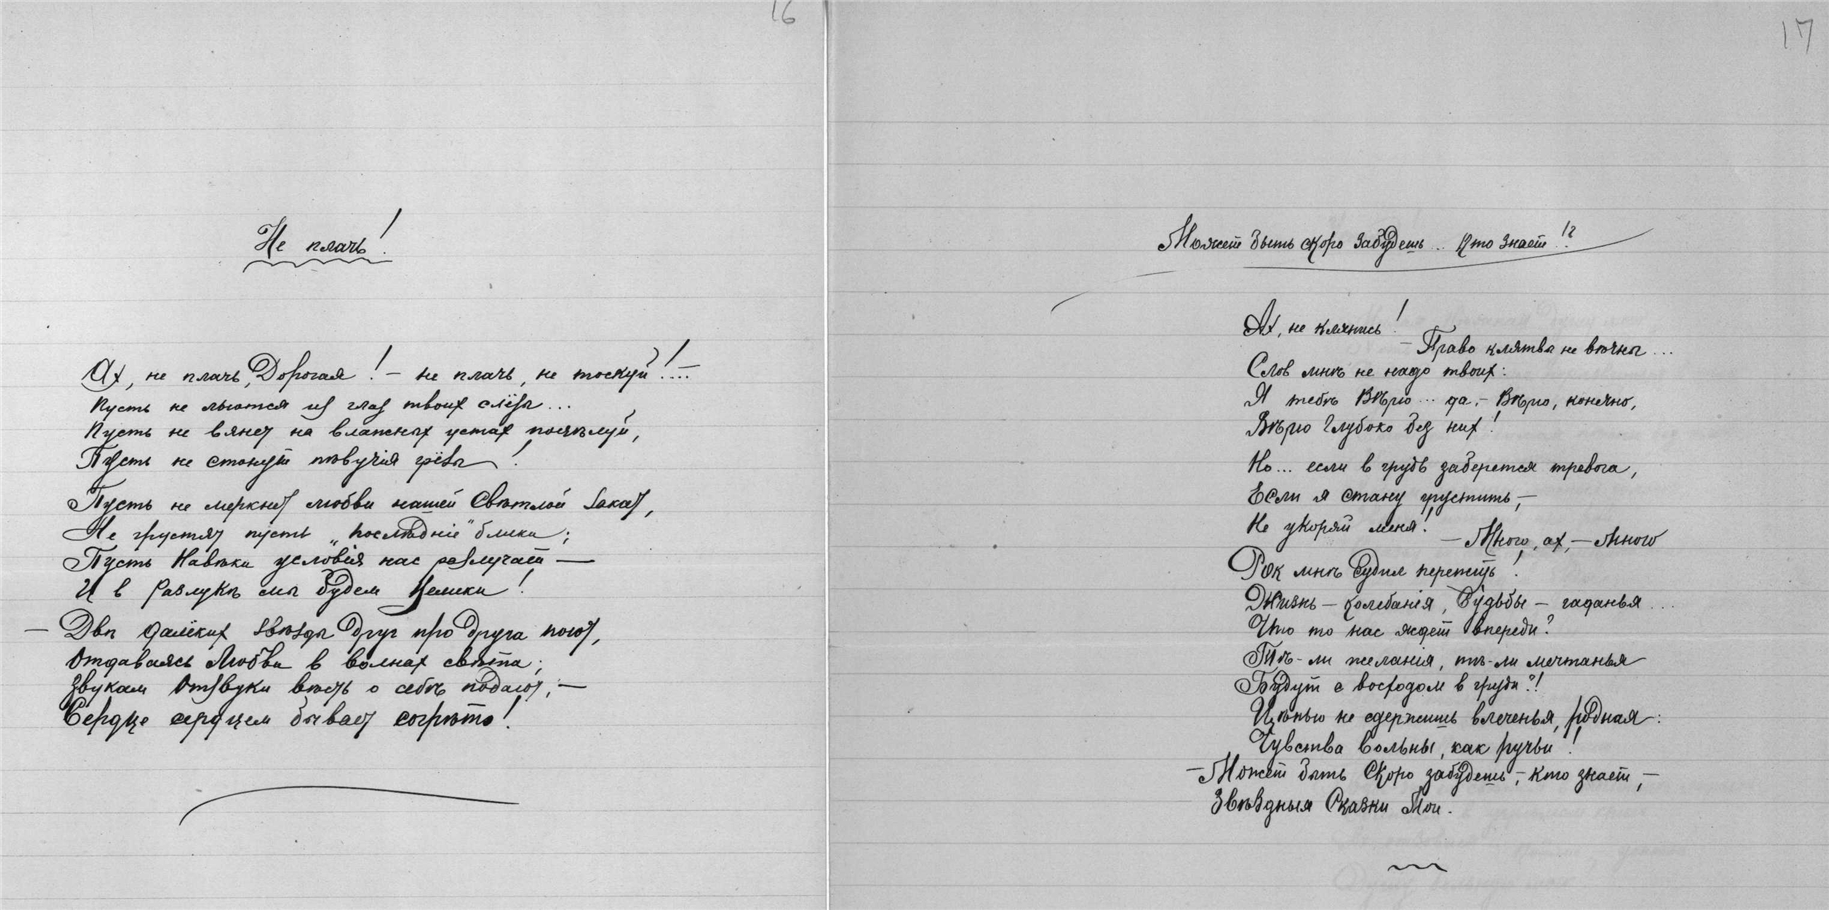 16
Не плачь!
Ах, не плачь, Дорогая! – не плачь, не тоскуй!...–
Пусть не льются из глаз твоих слёзы...
Пусть не вянет на влажных устах поцѣлуй,
Пусть не стонут пѣвучія грёзы!
Пусть не меркнет любви нашей Свѣтлой Закат,
Не грустят пусть „послѣдніе" блики;
Пусть Навѣки условія нас разлучает —
И в разлукѣ мы будем Велики!
— Двѣ далёких звѣзды друг про друга поют,
Отдаваясь Любви в волнах свѣта;
Звукам Отзвуки вѣсть о себѣ подают, —
Сердце сердцем бывает согрѣто!
17
Может быть скоро забудешь.. Кто знает!?
Ах, не клянись!
– Право клятвы не вѣчны...
Слов мнѣ не надо твоих:
Я тебѣ Вѣрю... да, – Вѣрю, конечно,
Вѣрю Глубоко без них!
Но... если в грудь заберется тревога,
Если я стану грустить, –
Не укоряй меня!
— Много, ах, – Много
Рок мнѣ Судил пережить!
Жизнь – Колебанія, Судьбы – гаданья...
Что то нас ждет впереди?
Тѣ-ли желанія, тѣ-ли мечтанья
Будут с восходом в груди?!
Цѣпью не сдержишь влеченья, родная:
Чувства вольны, как ручьи!
– Может быть Скоро забудешь, – кто знает, –
Звѣздныя Сказки Мои.